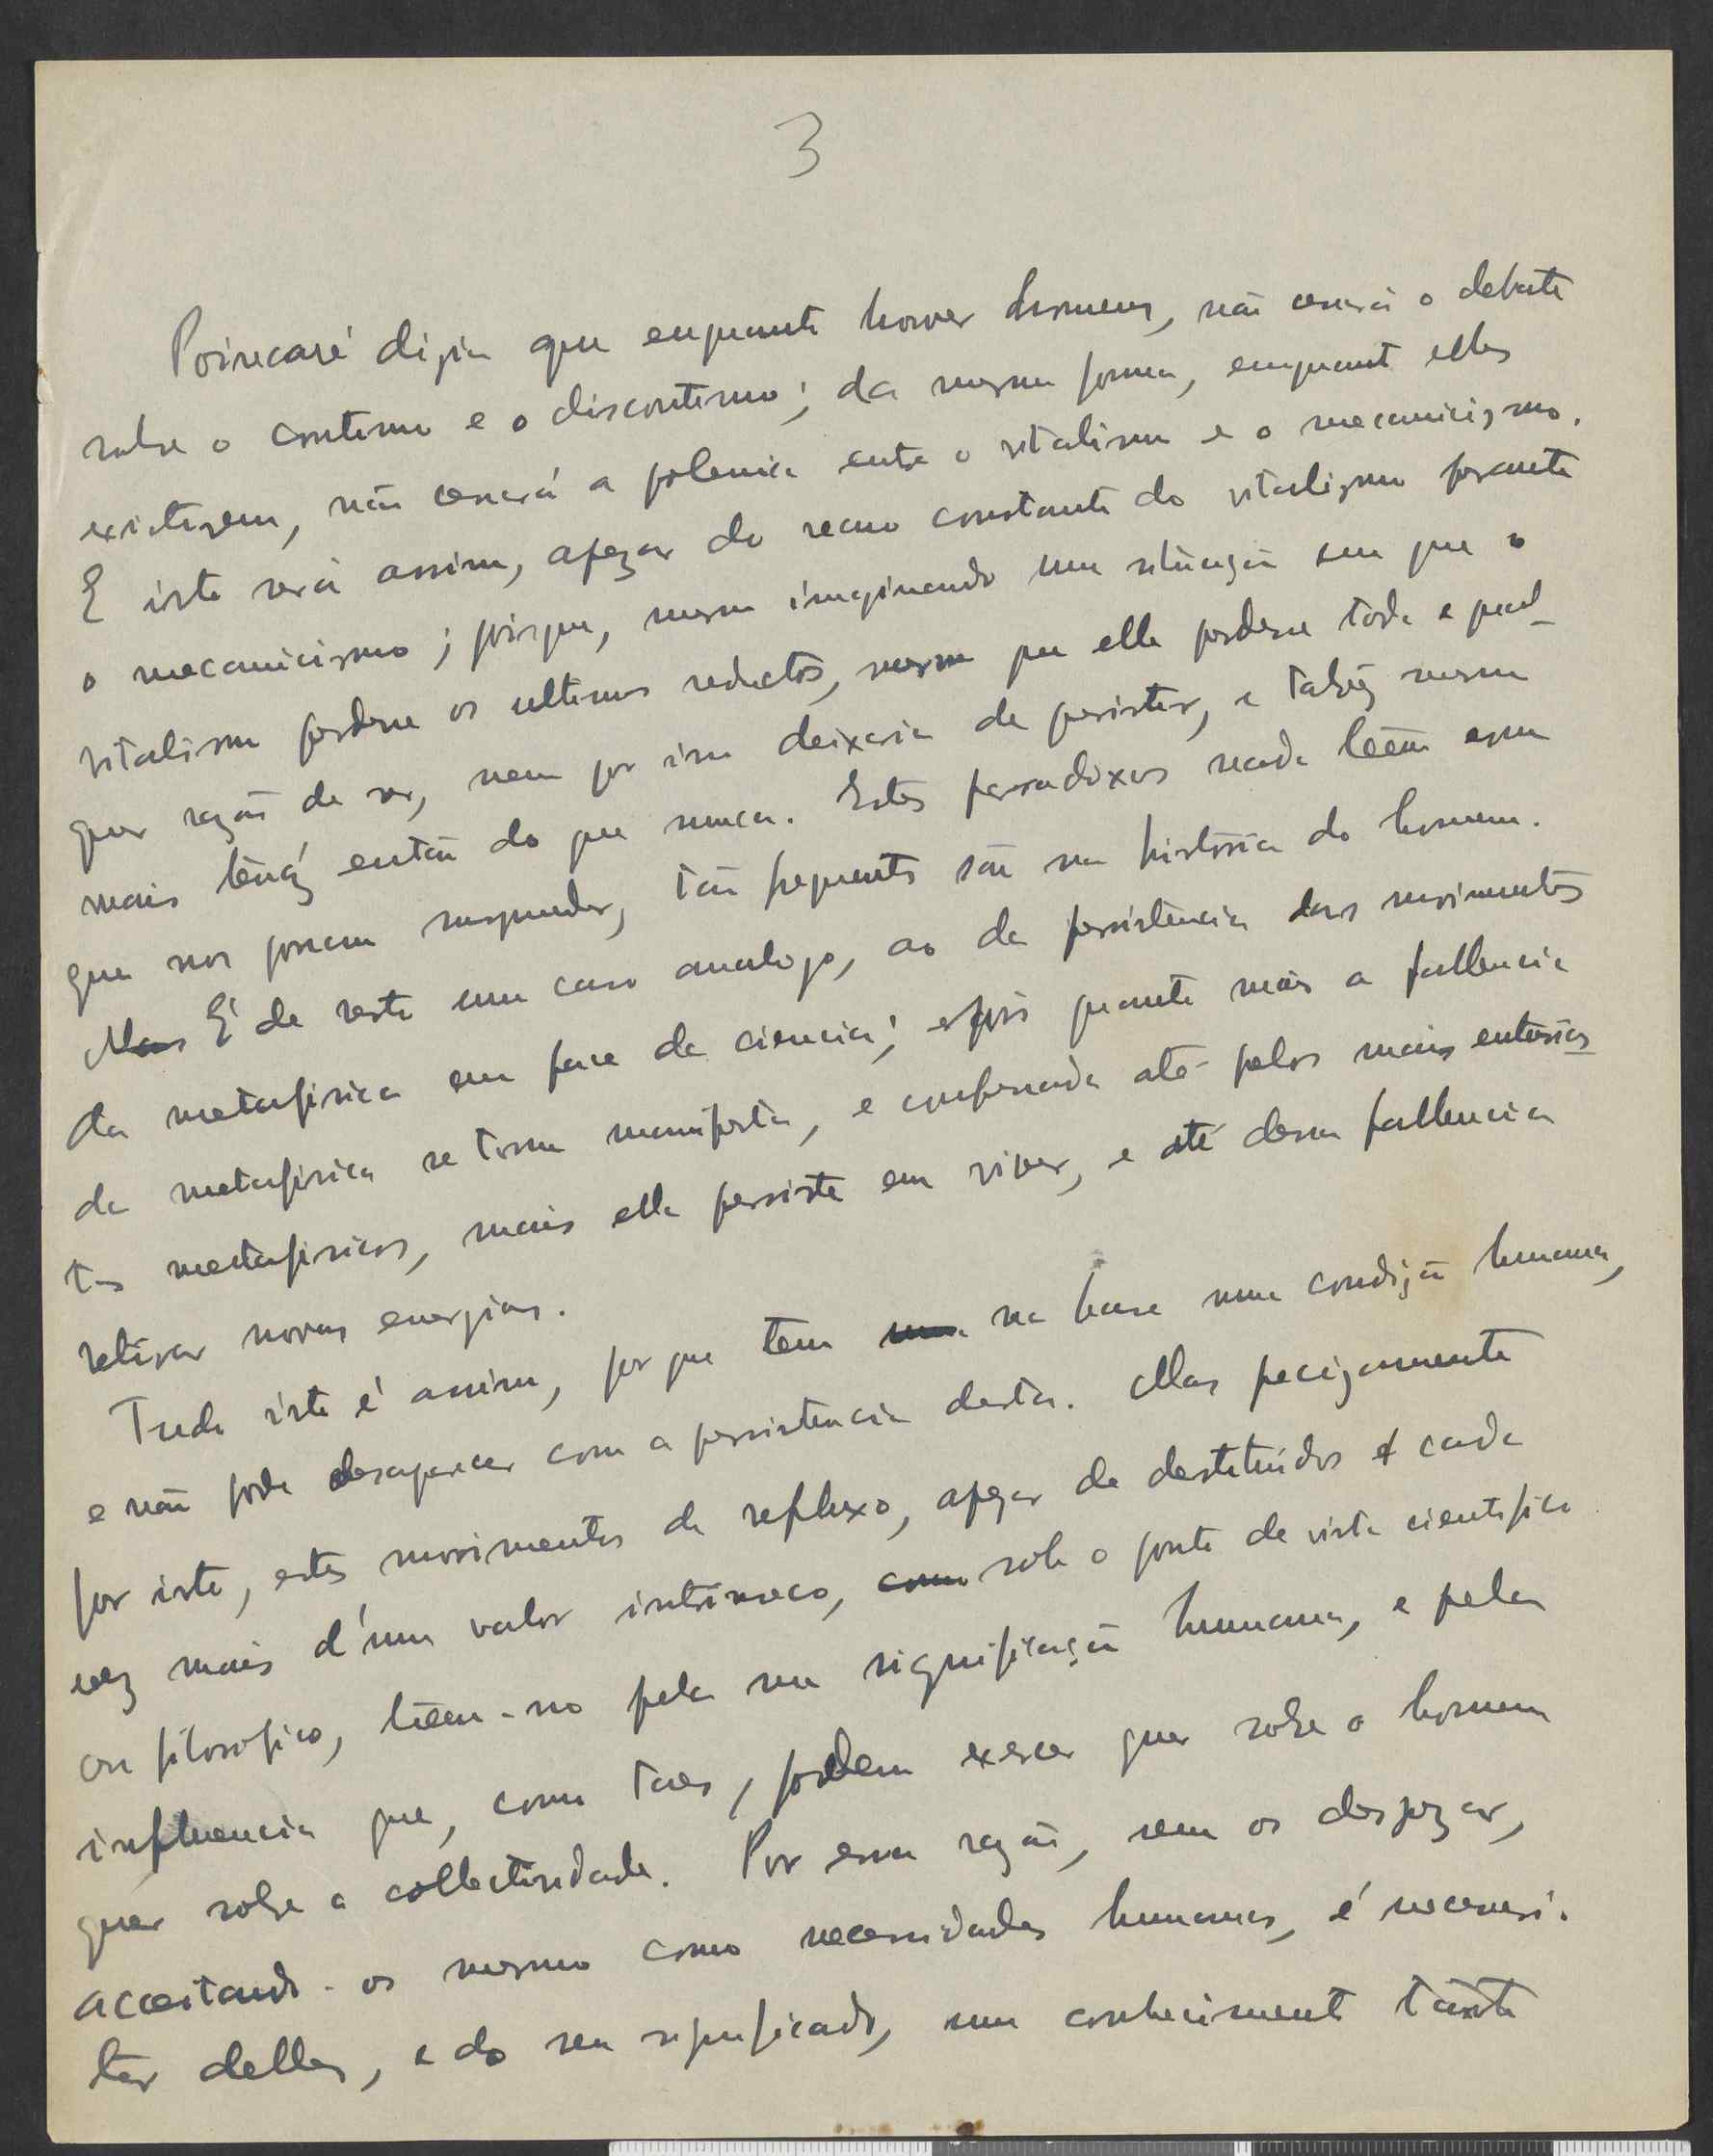 3
Poincaré dizia que enquanto houver homens, não cessará o debate
sobre o continuo e o discontinuo; da mesma forma, emquanto elles
existirem, não cessará a polemica entre o vitalismo e o mecanicismo.
E isto será assim, apezar do recuo constante do vitalismo perante
o mecanicismo; porque, mesmo imaginando uma situação em que o
vitalismo perdesse os ultimos reductos, mesmo que elle perdesse toda e qual-
quer razão de ser, nem por isso deixaria de persistir, e talvez mesmo
mais tenáz então do que nunca. Estes paradoxos nada teem em
que nos possam surpreender, tão frequentes são na história do homem.
Mas É de resto um caso analogo, ao da persistencia dos movimentos
da metafisica em face da ciencia; pois quanto mais a fallencia
da metafisica se torna manifesta, e confessada até pelos mais entusias
tas metafisicos, mais ella persiste em viver, e até dessa fallencia
retirar novas energias.
Tudo isto é assim, porque tem uma na base uma condição humana,
e não pode desaparecer com a persistencia desta. Mas precizamente
por isto, estes movimentos de refluxo, apezar de destituidos de cada
vez mais d'um valor intrinseco, como sob o ponto de vista cientifico
ou filosofico, teem-no pela sua significação humana, e pela
influencia que, como taes, podem exercer quer sobre o homem
quer sobre a collectividade. Por essa razão, sem os desprezar,
acceitando-os mesmo como necessidades humanas, é necessá-
ter delles, e do seu significado, um conheciment tanto